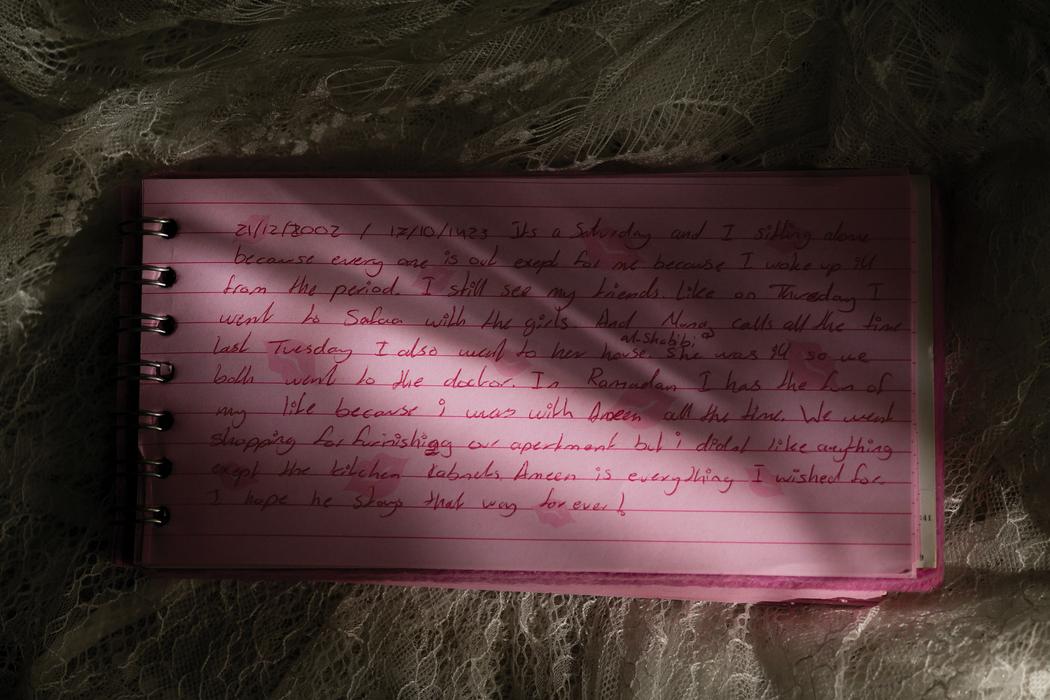 21/12/2002 / 17/10/1423 Its a Saturday and I sitting alone
because every one is out exept for me because I woke up ill
from the period. I still see my friends. Like on Thursday I
went to Safaa with the girls And calls all the time
al-Shabibi
last Tuesday I also went to her house. She was ill so we
both went to the doctor. In Ramadan I has the fun of
my life because i was with Ameen all the time. We went
shopping for furnishigg our apertment but i didnt like anything
exept the kitchen kabnets. Ameen is everything I wished for.
I hope he stays that way for ever!
41